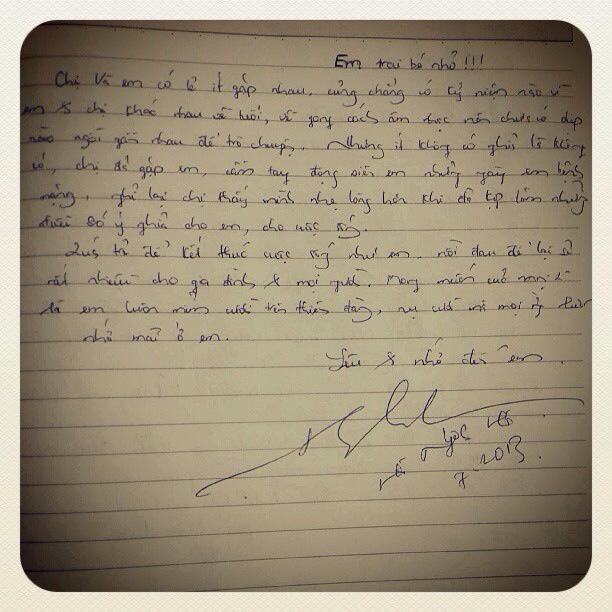 Em trai bé nhỏ!!!
Chị và em có lẽ ít gặp nhau, cũng chẳng có kỷ niệm nào vì
em & chị khác nhau về tuổi, về cách ẩm thực nên chưa có dịp
nào ngồi gần nhau để trò chuyện. Nhưng ít không có nghĩa là không
có, chị đã gặp em, cầm tay động viên em những ngày em bệnh
nặng, nghĩ lại chị thấy mình nhẹ lòng hơn khi đã kịp làm những
số ý nghĩa cho em, cho cuộc sống.
Quá trẻ để kết thúc cuộc sống như em. nỗi đau để lại sẽ
rất nhiều cho gia đình & mọi người. Mong muốn của
là em luôn mỉm cười trên thiên đàng, nụ cười mà mọi luôn
nhớ mãi ở em.
Yêu & nhớ đến em.
7-2013.